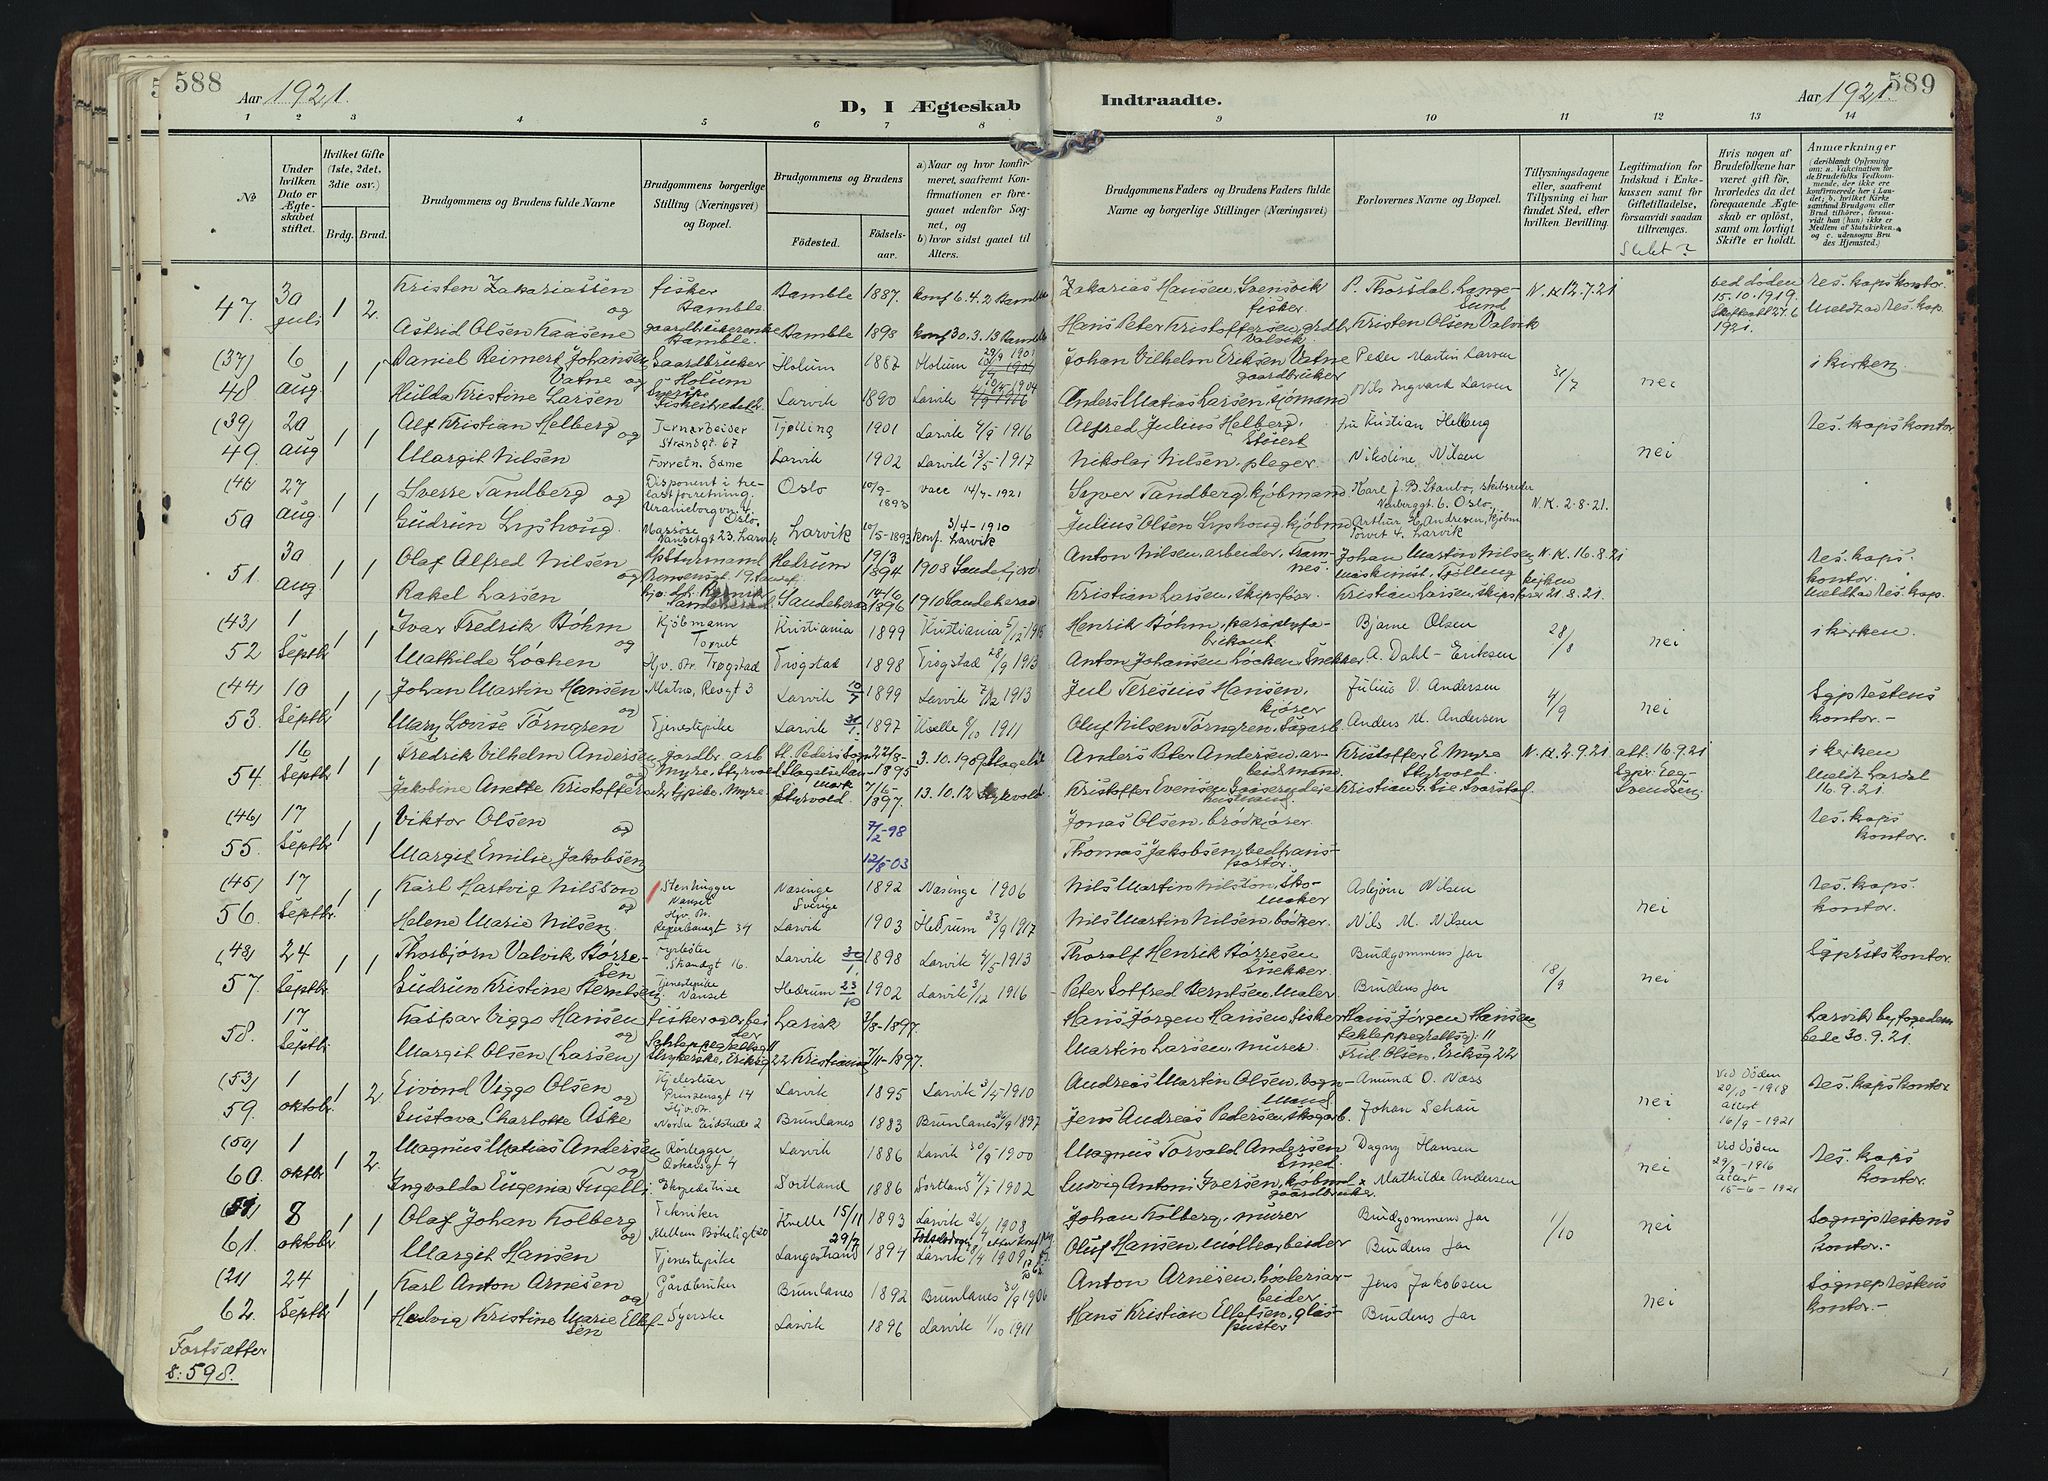 588
Aar 1921.
D, I Ægteskab
Indtraadte.
Aar 1921.
589
1 2 3 4 5 6 7 8 9 10 11 12 13 14
№
Under hvilken Dato er Ægteskabet stiftet.
Hvilket Gifte (1ste, 2det, 3die osv.)
Brdg. Brud.
Brudgommens og Brudens fulde Navne
Brudgommens borgerlige Stilling (Næringsvei) og Bopæl.
Brudgommens og Brudens
Fødested.
Fødselsaar.
a) Naar og hvor konfirmeret, saafremt Konfirmationen er foregaaet udenfor Sognet, og
b) hvor sidst gaaet til Alters.
Brudgommens Faders og Brudens Faders fulde Navne og borgerlige Stillinger (Næringsvei)
Forlovernes Navne og Bopæl.
Tillysningsdagene eller, saafremt Tillysning ei har fundet Sted, efter hvilken Bevilling.
Legitimation for Indskud i Enkekassen samt for Giftetilladelse, forsaavidt saadan tiltrænges.
Slekt?
Hvis nogen af Brudefolkene har været gift før, hvorledes da det foregaaende Ægteskab er opløst, samt om lovligt Skifte er holdt.
Anmærkninger
(deriblandt Oplysning om: a. Vaccination for de Brudefolks Vedkommende, der ikke ere konfirmerede her i Landet; b. hvilket Kirkesamfund Brudgom eller Brud tilhører, forsaavidt han (hun) ikke er Medlem af Statskirken, og c. udensogns Brudes Hjemsted.)
47. 30 juli 1 2 Kristen Zakariassen og fisker Bamble Bamble 1887. konf. 6.4.2 Bamble Zakarias Hansen, Svensvik fisker. P. Thorsdal, Langesund N.K 12.7.21 ved døden 15.10.1919. Skifteatt 27.6 1921. res. kaps kontor. Meldt av res. kap.
Astrid Olsen Kaasene gaardbrukerenke Bamble. Bamble 1898 konf 30.3.13 Bamble Hans Peter Kristoffersen, grdbr Valvik. Kristen Olsen Valvik
(37) 48 6 aug. 1 1 Daniel Reimert Johansen Vatne og Gaardbruker Holum Holum 1887 Holum 29/9 1901 Johan Vilhelm Eriksen Vatne gaardbruker Peder Martin Larsen 31/7 nei i kirken
Hulda Kristine Larsen Larvik 1890 Larvik Anders Matias Larsen, sjømand Nils Ingvard Larsen
(39) 49. 20 aug 1 1 Alf Kristian Helberg og Jernarbeider Strandgt. 67 Tjølling 1901 Larvik 1916 Alfred Julius Helberg, Stuert Kristian Helberg nei res. kaps kontor
Margit Nilsen Forretn. Dame Larvik 1902 Larvik 13/5-1917 Nikolai Nilsen, pleier. Nikoline Nilsen
50 27 aug. 1 1 Sverre Tandberg og Disponent i trelastforretning. Uranieborgvn. 4 Oslo. Oslo 10/9-1893 vacc 14/7-1921 Syver Tandberg, kjøbmand Karl J. B. Staubo, skibsreder Oslo, N.K. 2-8-21.
Gudrun Lyshoug. Massøse Nansetgt 23, Larvik Larvik 10/5-1893 konf. 3/4-1910 Larvik Julius Olsen Lyshoug, kjøbm Arthur E. Andresen, kjøbm Torvet 4. Larvik
51. 30 aug 1 1 Olaf Alfred Nilsen og Styrmand Hedrum 19/3 1894 1908 Sandefjord Anton Nilsen, arbeider, Framnes. Johan Martin Nilsen maskinist, Tjølling N.K. 16.8.21 res. kaps. kontor. Meldt av res. kap.
Rakel Larsen Sandeherad 14/6 1896 1910 Sandeherad Kristian Larsen, skipsfører. Kristian Larsen, skipsfører kirken 21.8.21.
(43) 52 1 Septbr 1 1 Ivar Fredrik Bøhm og Kjøbmann Torvet Kristiania 1899 Kristiania Henrik Bøhm, paraplyfabrikant Bjarne Olsen 28/8 nei i kirken.
Mathilde Løchen Hjv. dt. Trøgstad Trøgstad 1898 Trøgstad 28/9 1913 Anton Johansen Løchen, Snekker A. Dahl-Eriksen
(44) 53. 10 Septbr 1 1 Johan Martin Hansen og Matros, Revegt 3 Larvik 10/7 1899 Larvik 1913 Jul Teresius Hansen, kjører Julius V. Andersen 4/9 nei Sgprestens kontor.-
Mary Lovise Törngren Tjenestepike Larvik 1897 Kvelle 8/10 1911 Oluf Nilsen Törngren, Sagarb. Anders M. Andersen
54. 16 Septbr 1 1 Fredrik Vilhelm Andersen og jordbr. arb Myre, Styrvold St. Peders sogn Slagelse Danmark 22/8-1895 3.10.1909 Slagelse Anders Peter Andersen, arbeidsmand. Kristoffer E. Myre Styrvold. N.K. 2.9.21 att. 16.9.21 Sgpr. Eeg-Svendsen. i kirken Meldt Lardal 16.9.21.
Jakobine Anette Kristoffersen Myre Styrvold. 7/6-1897. 13.10.12 Styrvold Kristoffer Evensen husmand. Kristian G. Lie, Svarstad.
(46) 55. 17 Septbr 1 1 Viktor Olsen og 7/2-98 Jonas Olsen, brødkjører. res. kaps kontor.
Margit Emilie Jakobsen 12/8-03 Thomas Jakobsen, vedtransportør.
(45) 56. 17 Septbr. 1 1 Karl Hartvig Nilsson og Stenhugger Nanset Næsinge Sverige 1892 Næsinge 1906 Nils Martin Nilsson, Skomaker Asbjørn Nilsen nei res. kaps. kontor.
Helene Marie Nilsen Hjv. dt. Reperbanegt 34 Larvik 1903 Hedrum 23/9 1917 Nils Martin Nilsen, bødker. Nils M. Nilsen
(48) 57. 24 Septbr 1 1 Thorbjørn Valvik Børresen Fyrbøter Strandgt 16. Larvik 30/1 1898 Larvik 4/5 1913 Thoralf Henrik Børresen Snekker. Brudgommens far 18/9 nei Sgprsts kontor.
Gudrun Kristine Berntsen Tjenestepike Nanset Hedrum 23/10 1902 Larvik 3/12 1916 Peter Gotfred Berntsen, Maler Brudens far
58. 17 Septbr Kaspar Viggo Hansen og fisker og arbeider Larvik 2/8-1897. Hans Jørgen Hansen, fisker Hans Jørgen Hansen 11 Larvik byfogedembede 30.9.21.
Margit Olsen (Larsen) Strykerske, Eriksg 22 Kristiania 7/11-1897. Martin Larsen, murer Frid. Olsen, Eriksg 22
(53) 59. 1 oktobr. 1 2 Eivond Viggo Olsen og Hjelestuer Prinsensgt 14 Larvik 1895 Larvik 3/4-1910 Andreas Martin Olsen, vognmand. Amund O. Næss nei ved Døden 20/10-1918 attest 16/9-1921 res. kaps kontor
Gustava Charlotte Aske Hjv. dt. Nordre Eidstrede 2 Brunlanes 1883 Brunlanes 1897 Jens Andreas Pedersen, skogarb. Johan Schau
(50) 60. 1 oktbr 1 2 Magnus Matias Andersen og Rørlegger Oskarsgt 4 Larvik 1886 Larvik 1900 Magnus Torvald Andersen Smed. Dagny Hansen nei Ved Døden 1916 attest 15-6-1921 res. kaps kontor.
Ingvalda Eugenia Fugelli Ekspeditrise Sortland 1886 Sortland 1902 Ludvig Antoni Iversen, kjøbmd gaardbruker. Mathilde Andersen
(51) 61. 8 oktobr 1 1 Olaf Johan Kolberg og Tekniker Mellem Bøkeligt 20 Kvelle 15/11 1893 Larvik 26/4 1908 Johan Kolberg, murer Brudgommens far 1/10 nei Sogneprestens kontor.-
Margit Hansen Tjenestepike Langestrand 29/7 1894 Larvik 1909 Oluf Hansen, Møllearbeider Brudens far
(21) 62. 24 Septbr 1 1 Karl Anton Arnesen og Gårdbruker Brunlanes 1892 Brunlanes 1906 Anton Arnesen, høvleriarbeider Jens Jakobsen nei Sogneprestens kontor.-
Hedvig Kristine Marie Ellefsen Syerske Larvik 1896 Larvik 1/10 1911 Hans Kristian Ellefsen, glaspuster Brudens far
Fortsætter s: 598.